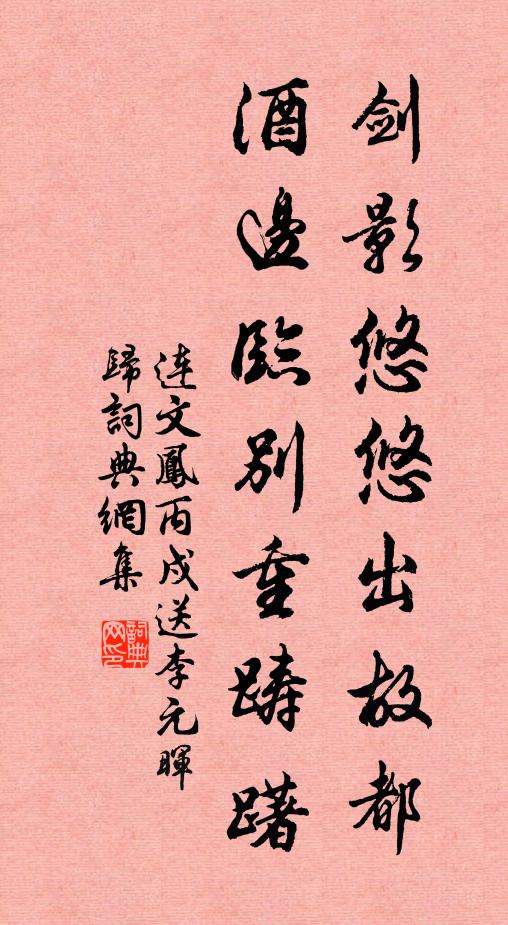 劍影悠悠出故都
酒邊臨別重踌躇
连文鳳丙戍送李元暉
歸詞典網集
詞典网印